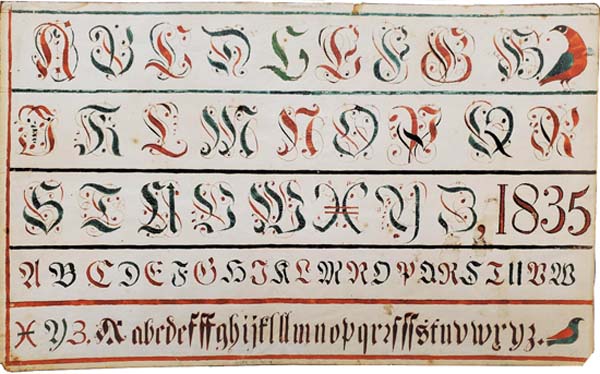 A B C D E E F G H
J K L M N O P Q R
S T U V W X Y Z, 1835
A B C D E F G H I K L M N O P Q R S T U V W
X Y Z. A abcdefffghijklllmnopqrꝛſſſsstuvwxyz.